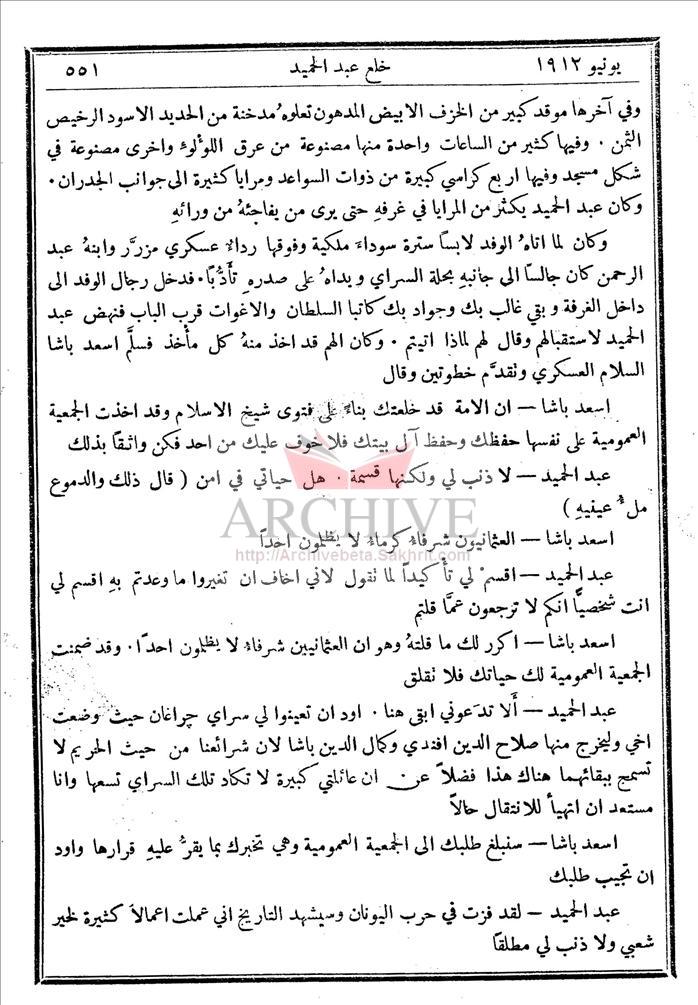 يونيو ١٩١٢ خلع عبد الحميد ٥٥١
وفي آخرها موقد كبير من الخزف الابيض المدهون تعلوهُ مدخنة من الحديد الاسود الرخيص
الثمن ٠ وفيها كثير من الساعات واحدة منها مصنوعة من عرق اللوٴلوٴ واخرى مصنوعة في
شكل مسجد وفيها اربع كراسي كبيرة من ذوات السواعد ومرايا كثيرة الى جوانب الجدران ٠
وكان عبد الحميد يكثر من المرايا في غرفهِ حتى يرى من يفاجئهُ من ورائهِ
وكان لما اتاهُ الوفد لابسًا سترة سوداءَ ملكية وفوقها رداءٌ عسكري مزرَّر وابنهُ عبد
الرحمن كان جالسًا الى جانبهِ بحلة السراي ويداهُ على صدرهِ تأَدُّبًا ٠ فدخل رجال الوفد الى
داخل الغرفة وبقي غالب بك وجواد بك كاتبا السلطان والاغوات قرب الباب فنهض عبد
الحميد لاستقبالهم وقال لهم لماذا اتيتم ٠ وكان الهم قد اخذ منهُ كل مأخذ فسلَّم اسعد باشا
السلام العسكري وتقدَّم خطوتين وقال
اسعد باشا — ان الامة قد خلعتك بناءً على فتوى شيخ الاسلام وقد اخذت الجمعية
العمومية على نفسها حفظك وحفظ آل بيتك فلا خوف عليك من احد فكن واثقًا بذلك
عبد الحميد — لا ذنب لي ولكنها قسمة ٠ هل حياتي في امن ( قال ذلك والدموع
ملءُ عينيهِ )
ARCHIVE
اسعد باشا — العثمانيون شرفاءُ كرماءُ لا يظلمون احدًا
http://Archivebeta.Sakhrit.com
عبد الحميد — اقسمْ لي تأكيدًا لما تقول لاني اخاف ان تغيروا ما وعدتم بهِ اقسم لي
انت شخصيًّا انكم لا ترجعون عمَّا قلتم
اسعد باشا — اكرر لك ما قلتهُ وهو ان العثمانيين شرفاءُ لا يظلمون احدًا ٠ وقد ضمنت
الجمعية العمومية لك حياتك فلا تقلق
عبد الحميد — أَلا تدَعوني ابقى هنا ٠ اود ان تعينوا لي سراي چراغان حيث وضعت
اخي وليخرج منها صلاح الدين افندي وكمال الدين باشا لان شرائعنا من حيث الحريم لا
تسمح ببقائهما هناك هذا فضلاً عن ان عائلتي كبيرة لا تكاد تلك السراي تسعها وانا
مستعد ان اتهيأَ للانتقال حالاً
اسعد باشا — سنبلغ طلبك الى الجمعية العمومية وهي تخبرك بما يقرُّ عليهِ قرارها واود
ان تجيب طلبك
عبد الحميد — لقد فزت في حرب اليونان وسيشهد التاريخ اني عملت اعمالاً كثيرة لخير
شعبي ولا ذنب لي مطلقًا